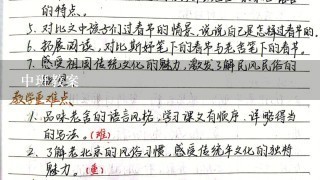 的特点。
5. 对比文中孩子们过春节的情景，说说自己是怎样过春节的。
6. 拓展阅读，对比斯妤笔下的春节与老舍笔下的春节。
7. 感受祖国传统文化的魅力，激发了解民风民俗的
中班教案
教学重难点
1. 品味老舍的语言风格，学习课文有顺序、详略得当
的写法。(难)
2. 了解老北京的风俗习惯，感受传统年文化的独特
魅力。(重)